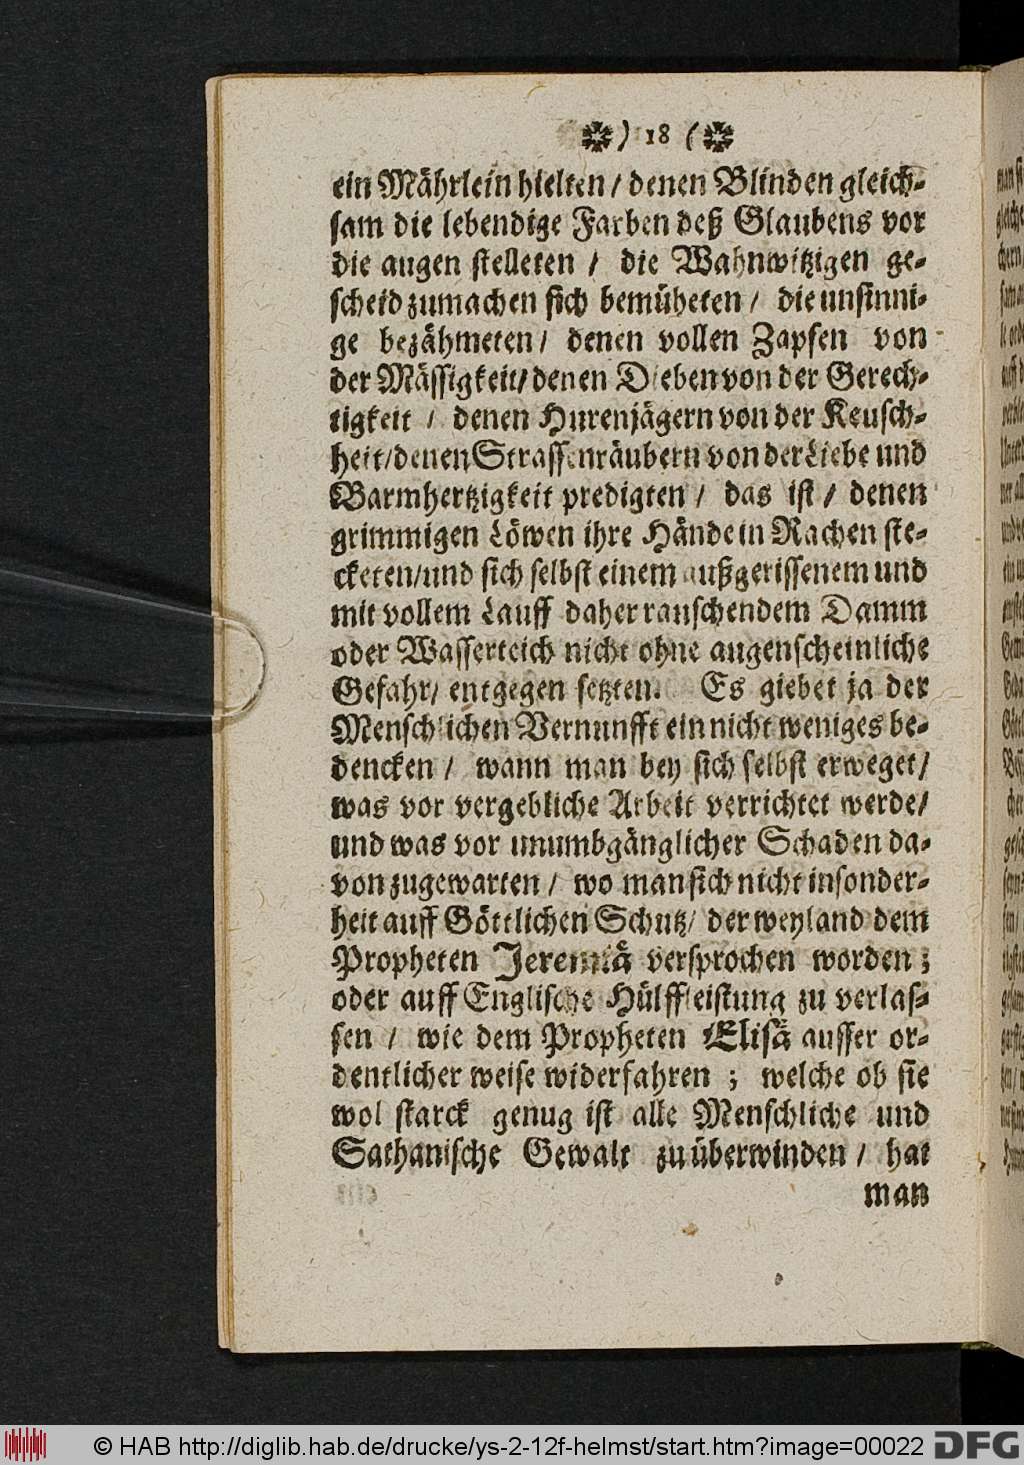 ) 18 (
ein Mährlein hielten / denen Blinden gleich-
sam die lebendige Farben deß Glaubens vor
die augen stelleten / die Wahnwitzigen ge-
scheid zumachen sich bemüheten / die unsinni-
ge bezähmeten / denen vollen Zapfen von
der Mässigkeit / denen Dieben von der Gerech-
tigkeit / denen Hurenjägern von der Keusch-
heit / denen Strassenräubern von der Liebe und
Barmhertzigkeit predigten / das ist / denen
grimmigen Löwen ihre Hände in Rachen ste-
cketen / und sich selbst einem außgerissenem und
mit vollem Lauff daher rauschendem Damm
oder Wasserteich nicht ohne augenscheinliche
Gefahr / entgegen setzten. Es giebet ja der
Menschlichen Vernunfft ein nicht weniges be-
dencken / wann man bey sich selbst erweget /
was vor vergebliche Arbeit verrichtet werde /
und was vor unumbgänglicher Schaden da-
von zugewarten / wo man sich nicht insonder-
heit auff Göttlichen Schutz / der weyland dem
Propheten Jeremiä versprochen worden ;
oder auff Englische Hülffleistung zu verlas-
sen / wie dem Propheten Elisä ausser or-
dentlicher weise widerfahren ; welche ob sie
wol starck genug ist alle Menschliche und
Sathanische Gewalt zu überwinden / hat
man
© HAB http://diglib.hab.de/drucke/ys-2-12f-helmst/start.htm?image=00022
DFG